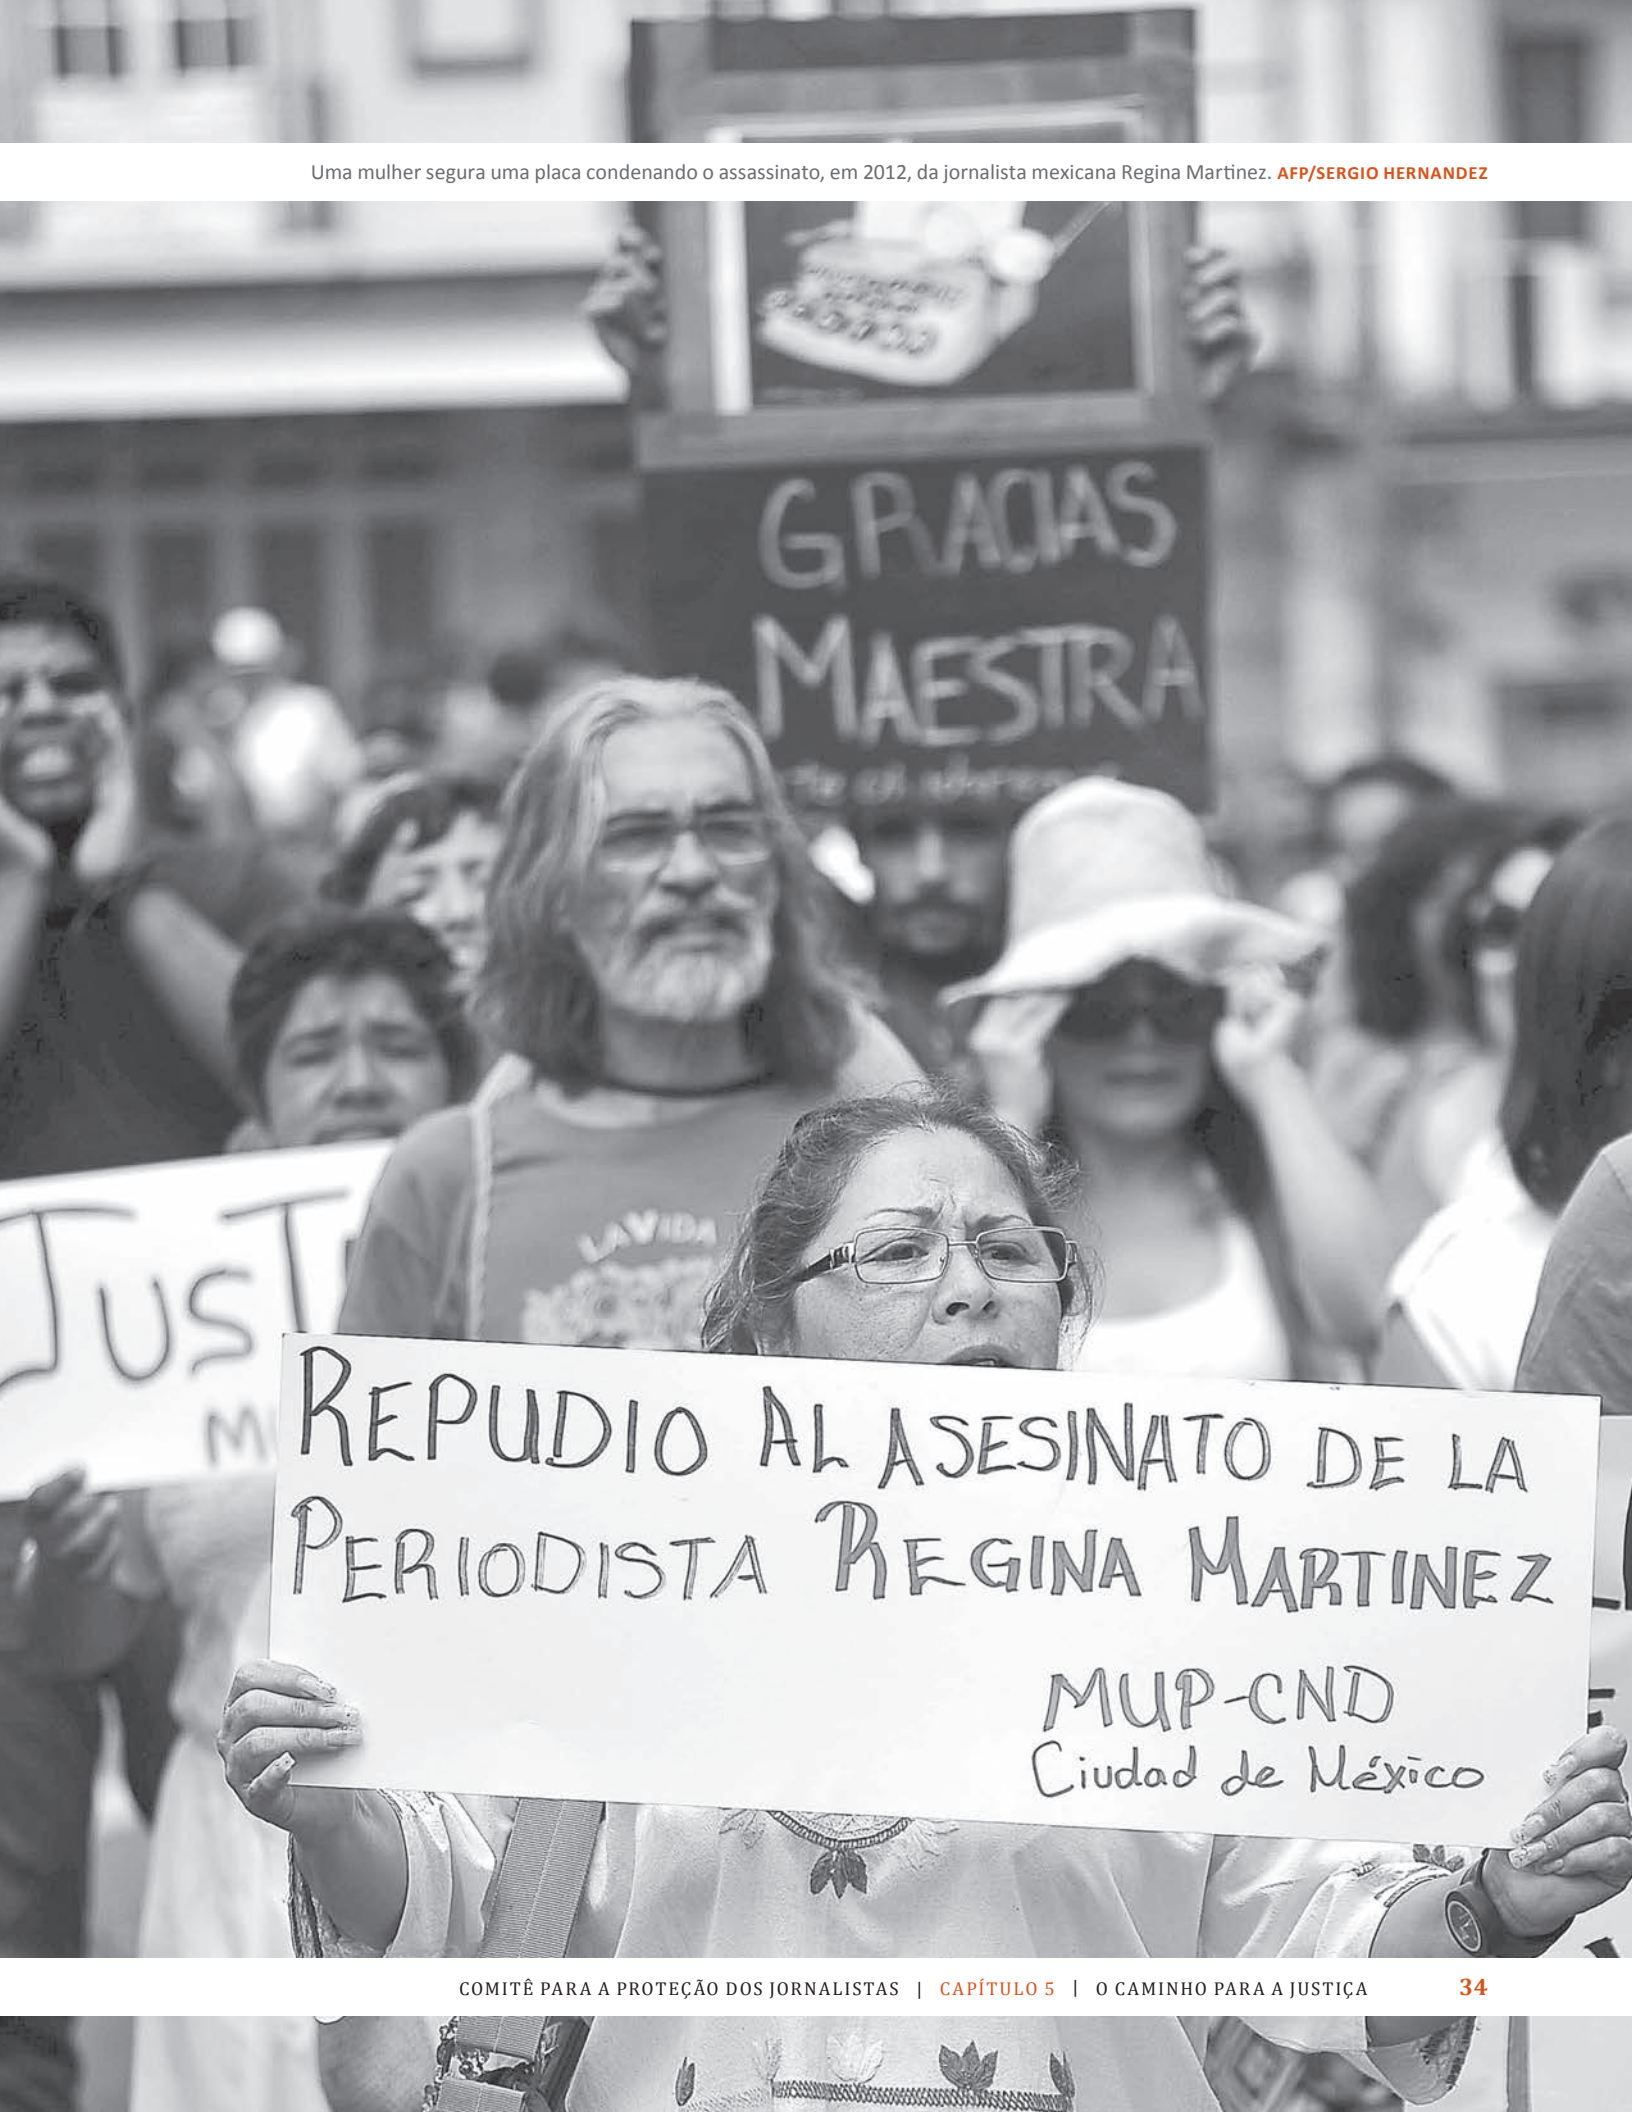 Uma mulher segura uma placa condenando o assassinato, em 2012, da jornalista mexicana Regina Martinez. AFP/SERGIO HERNANDEZ
GRACIAS
MAESTRA
LA VIDA
JUST
M
REPUDIO AL ASESINATO DE LA
PERIODISTA REGINA MARTINEZ
MUP-CND
Ciudad de México
COMITÊ PARA A PROTEÇÃO DOS JORNALISTAS | CAPÍTULO 5 | O CAMINHO PARA A JUSTIÇA 34